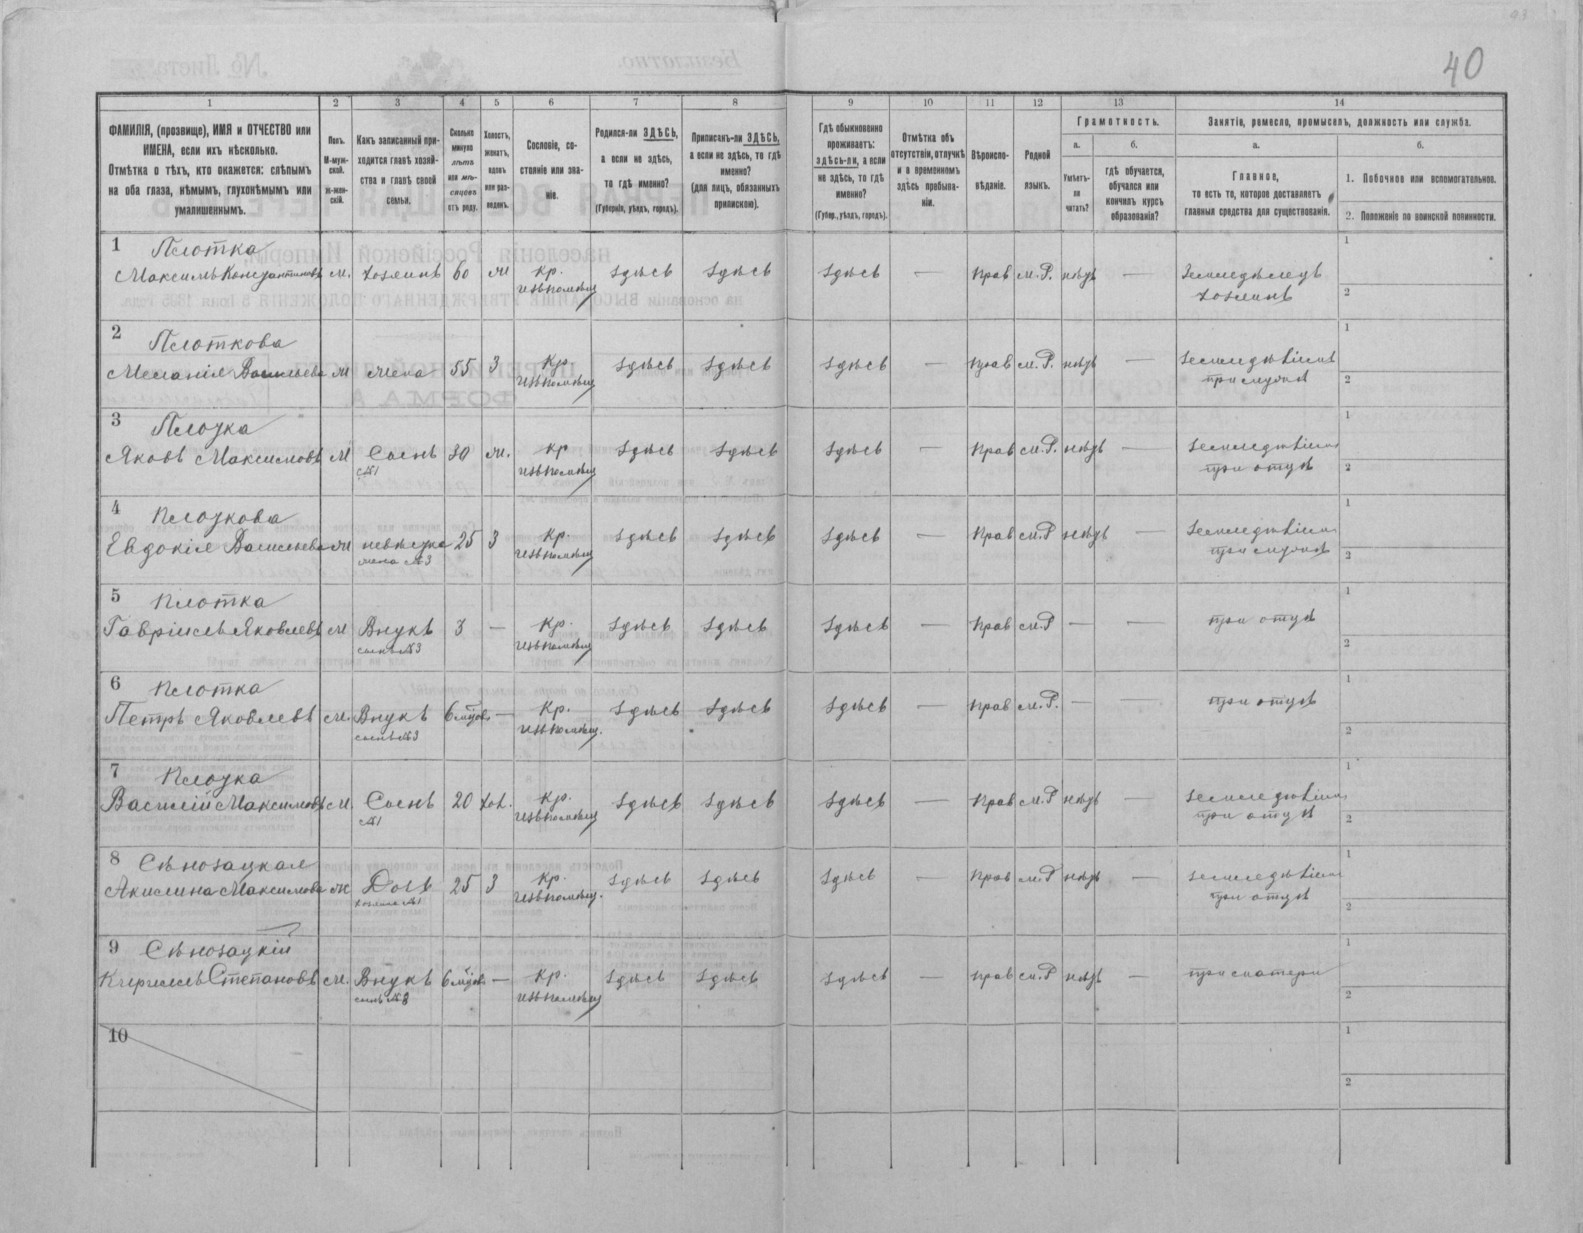 40
1 2 3 4 5 6 7 8 9 10 11 12 13 14
ФАМИЛІЯ, (прозвище), ИМЯ и ОТЧЕСТВО или ИМЕНА, если ихъ нѣсколько.
Отмѣтка о тѣхъ, кто окажется: слѣпымъ на оба глаза, нѣмымъ, глухонѣмымъ или умалишеннымъ.
Полъ. М-мужской. ж-женскій.
Какъ записанный приходится главѣ хозяйства и главѣ своей семьи.
Сколько минуло лѣтъ или мѣсяцевъ отъ роду.
Холостъ, женатъ, вдовъ или разведенъ.
Сословіе, состояніе или званіе.
Родился-ли ЗДѢСЬ, а если не здѣсь, то гдѣ именно? (Губернія, уѣздъ, городъ).
Приписанъ-ли ЗДѢСЬ, а если не здѣсь, то гдѣ именно? (для лицъ, обязанныхъ припискою).
Гдѣ обыкновенно проживаетъ: здѣсь-ли, а если не здѣсь, то гдѣ именно? (Губер., уѣздъ, городъ).
Отмѣтка объ отсутствіи, отлучкѣ и о временномъ здѣсь пребываніи.
Вѣроисповѣданіе.
Родной языкъ.
Грамотность.
а. Умѣетъ-ли читать?
б. гдѣ обучается, обучался или кончилъ курсъ образованія?
Занятіе, ремесло, промыселъ, должность или служба.
а. Главное, то есть то, которое доставляетъ главныя средства для существованія.
б.
1. Побочное или вспомогательное.
2. Положеніе по воинской повинности.
1 Плотка
Максимъ Константиновъ м. хозяинъ 60 ж кр. изъ помѣщ здѣсь здѣсь здѣсь — прав м. Р. нѣтъ — Земледѣлецъ хозяинъ 1 2
2 Плоткова
Меланія Васильева ж жена 55 З кр. изъ помѣщ здѣсь здѣсь здѣсь — прав м. Р. нѣтъ — земледѣліемъ при мужѣ 1 2
3 Плотка
Яковъ Максимовъ м Сынъ №1 30 ж. кр изъ помѣщ здѣсь здѣсь здѣсь — прав м. Р. нѣтъ — земледѣліемъ при отцѣ 1 2
4 Плоткова
Евдокія Васильева ж невѣстка жена №3 25 З кр. изъ помѣщ здѣсь здѣсь здѣсь — прав м. Р нѣтъ — земледѣліемъ при мужѣ 1 2
5 Плотка
Гавріилъ Яковлевъ м Внукъ сынъ №3 3 — кр. изъ помѣщ здѣсь здѣсь здѣсь — прав м. Р — — при отцѣ 1 2
6 Плотка
Петръ Яковлевъ м. Внукъ сынъ №3 6 мѣсяцовъ — кр. изъ помѣщ. здѣсь здѣсь здѣсь — прав м. Р. — — при отцѣ 1 2
7 Плотка
Василій Максимовъ м. Сынъ №1 20 хол. кр. изъ помѣщ здѣсь здѣсь здѣсь — прав м. Р нѣтъ — земледѣліемъ при отцѣ 1 2
8 Сѣнозацкая
Акилина Максимова ж Дочь хозяина №1 25 З кр. изъ помѣщ. здѣсь здѣсь здѣсь — прав м. Р нѣтъ — земледѣліемъ при отцѣ 1 2
9 Сѣнозацкій
Кирилъ Степановъ м. Внукъ сынъ №8 6 мѣсяцовъ — кр. изъ помѣщ здѣсь здѣсь здѣсь — прав м. Р нѣтъ — при матери 1 2
10 1 2